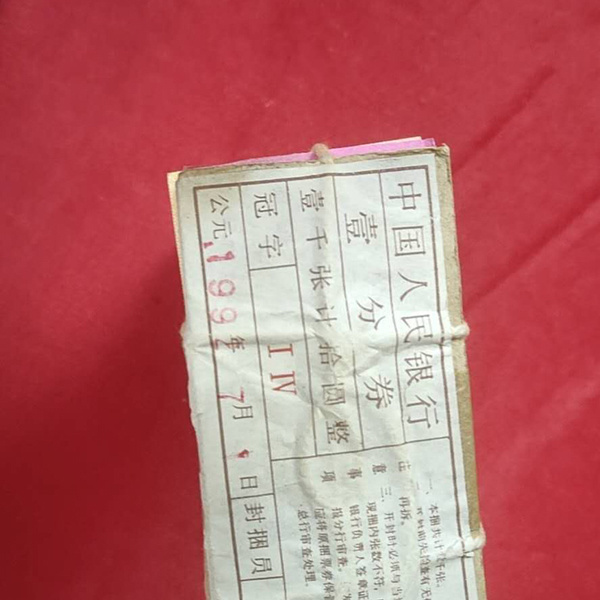 中国人民银行
壹分券
壹千张计拾圆整
冠字 I IV
公元1992年7月 日 封捆员
注意事项
一、本捆共计
再拆。
三、开封时必须与当
现捆内张数不符，
银行负责人签章证
报分行审查，
总行审查处理。